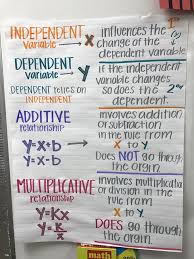 INDEPENDENT
variable → x
influences the
change of the
dependent variable.
1st
DEPENDENT
variable y
DEPENDENT relies on
INDEPENDENT
if the independent
variable changes
so does the
dependent.
2nd
ADDITIVE
relationship
y=x+b
y=x-b
involves addition
or subtraction
in the rule from
x to y
Does NOT go through
the orgin.
MULTIPLICATIVE
relationship
y=Kx
y=x/K
involves multiplication
or division in
the rule from
x to y
DOES go through
the orgin.